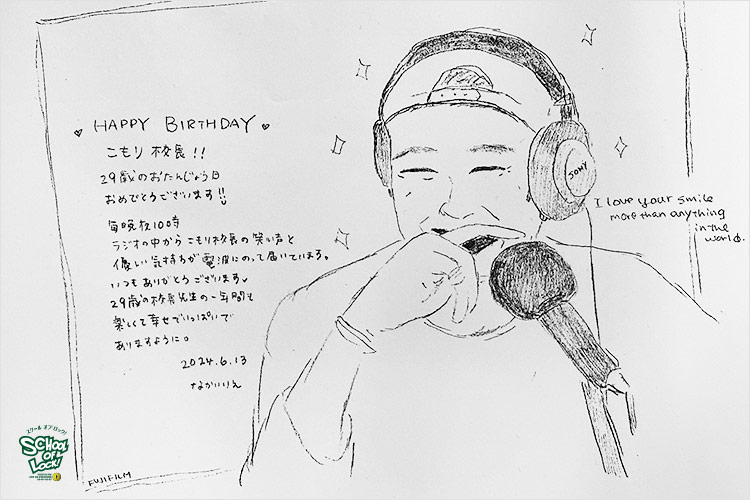 HAPPY BIRTHDAY
こもり校長!!
29歳のおたんじょう日
おめでとうございます!!
毎晩夜10時
ラジオの中からこもり校長の笑い声と
優しい気持ちが電波にのって届いています。
いつもありがとうございます
29歳の校長先生の一年間も
楽しくて幸せでいっぱいで
ありますように。
2024.6.13
なかいりえ
SONY
I love your smile
more than anything
in the
world.
スクール オブ ロック!
SCHOOL
OF
LOCK!
FUJIFILM